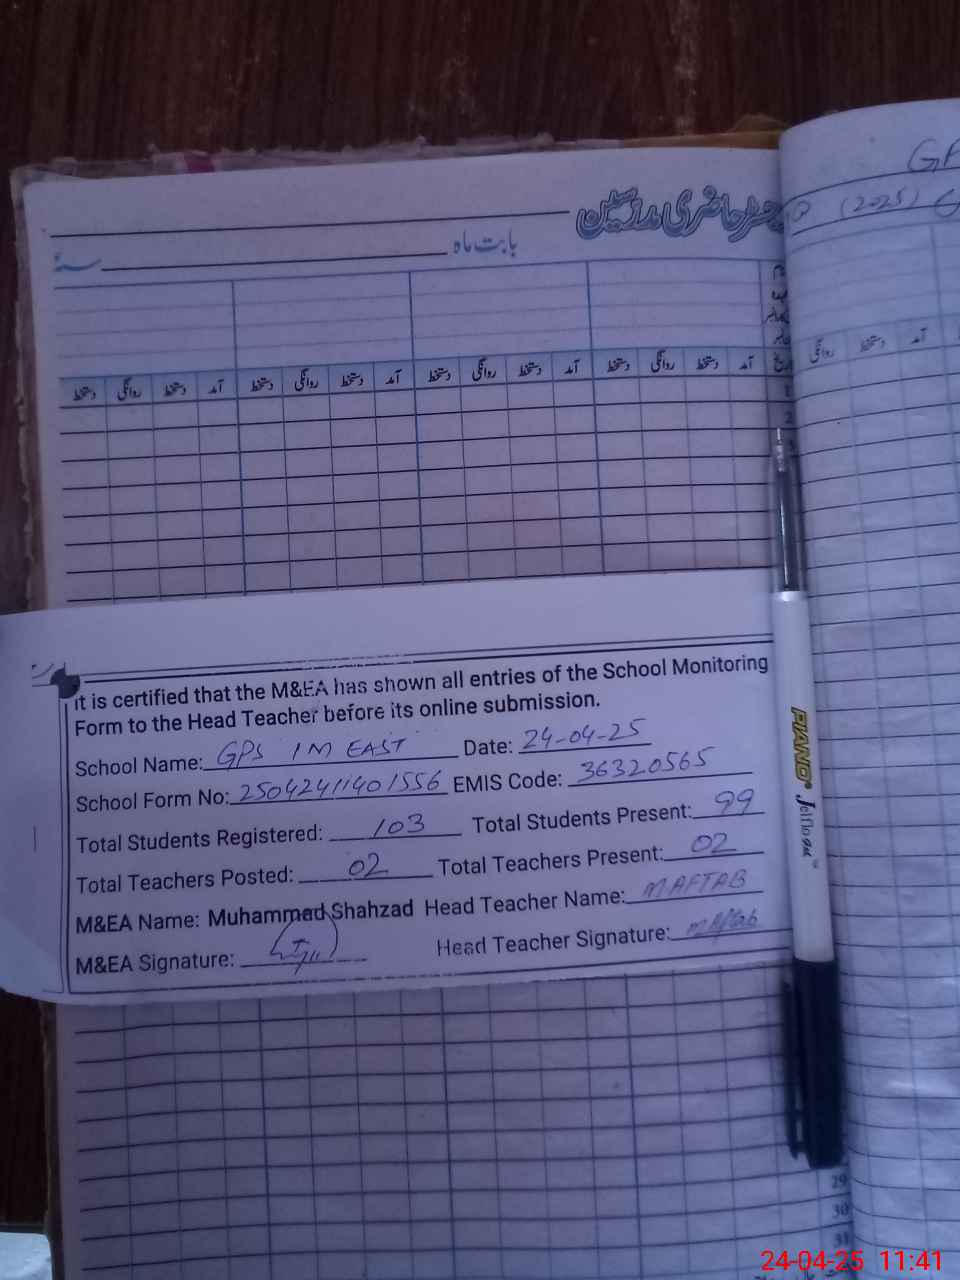 رجسٹر حاضری مدرسین
بابت ماہ سنہ
آمد دستخط روانگی دستخط آمد دستخط روانگی دستخط آمد دستخط روانگی دستخط آمد دستخط روانگی دستخط
(2025)
آمد دستخط روانگی
It is certified that the M&EA has shown all entries of the School Monitoring
Form to the Head Teacher before its online submission.
School Name: GPS 1M EAST Date: 24-04-25
School Form No: 25042411401556 EMIS Code: 36320565
Total Students Registered: 103 Total Students Present: 99
Total Teachers Posted: 02 Total Teachers Present: 02
M&EA Name: Muhammad Shahzad Head Teacher Name: M AFTAB
M&EA Signature: Head Teacher Signature: M Aftab
PIANO Jelflo
29
30
31
24-04-25 11:41